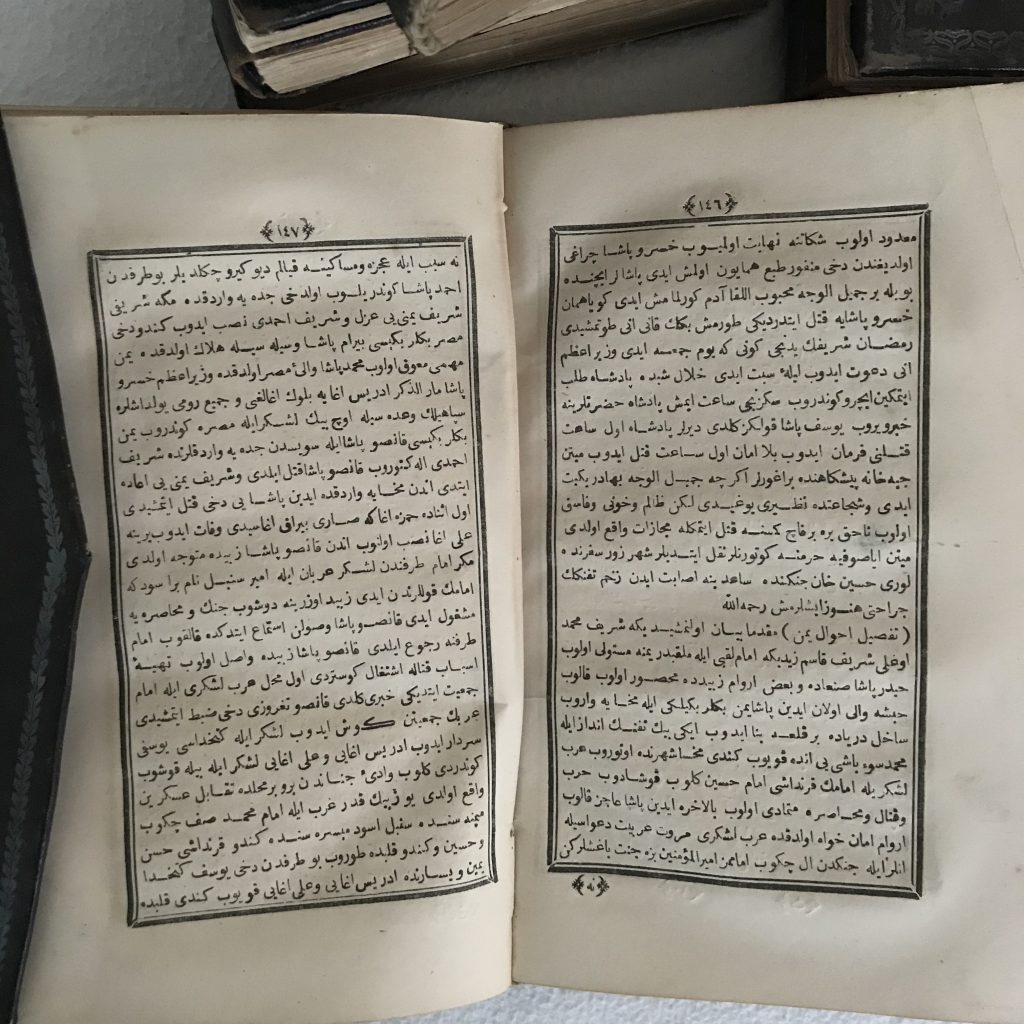 ١٤٦
معدود اولوب شكاتنه نهايت اولميوب خسرو پاشا چراغى
اولديغندن دخى منفور طبع همايون اولمش ايدى پاشالر ايچنده
بويله بر جميل الوجه محبوب اللقا آدم كورلمامش ايدى كويا همان
خسرو پاشايه قتل ايتدرديكى طورمش بكك قانى انى طوتمشيدى
رمضان شريفك يدنجى كونى كه يوم جمعه ايدى وزير اعظم
انى دعوت ايدوب ليلهٔ سبت ايدى خلال شبده پادشاه طلب
ايتمكين ايچرو كوندروب سكزنجى ساعت ايمش پادشاه حضرتلرينه
خبر ويروب يوسف پاشا قولكز كلدى ديرلر پادشاه اول ساعت
قتلنى فرمان ايدوب بلا امان اول ساعت قتل ايدوب ميتن
جبه خانه پيشكاهنده براغورلر اكر چه جميل الوجه بهادر يكيت
ايدى وشجاعتده نظيرى يوغيدى لكن ظالم وخونى وفاسق
اولوب ناحق يره برقاچ كمسنه قتل ايتمكله مجازات واقع اولدى
ميتن اياصوفيه حرمنه كوتورنلر نقل ايتديلر شهرزور سفرنده
لورى حسين خان جنكنده ساعدينه اصابت ايدن زخم تفنكك
جراحتى هنوز ايشلرمش رحمه الله
( تفصيل احوال يمن ) مقدما بيان اولنمشيد يكه شريف محمد
اوغلى شريف قاسم زيديكه امام لقبى ايله ملقبدر يمنه مستولى اولوب
حيدر پاشا صنعاده و بعض اروام زبيدده محصور اولوب قالوب
حبشه والى اولان ايدين پاشا يمن بكلر بكيلكى ايله مخايه واروب
ساحل درياده بر قلعه بنا ايدوب ايكى بيك تفنك انداز ايله
محمد سوء باشى يى انده قويوب كندى مخا شهرنده اوتوروب عرب
لشكريله امامك قرنداشى امام حسين كلوب قوشادوب حرب
وقتال ومحاصره متمادى اولوب بالاخره ايدين پاشا عاجز قالوب
اروام امان خواه اولدقده عرب لشكرى مروت عربيت دعواسيله
انلر ايله جنكدن ال چكوب امامز امير المؤمنين بزه جنت باغشلركن
نه
١٤٧
نه سبب ايله عجزه ومساكينه قيالم ديو كيرو چكلديلر بوطرفدن
احمد پاشا كوندريلوب اولدخى جده يه واردقده مكه شريفى
شريف يمنى يى عزل وشريف احمدى نصب ايدوب كندودخى
مصر بكلر بكيسى بيرام پاشا وسيله سيله هلاك اولدقده يمن
مهمى معوق اولوب محمد پاشا والئ مصر اولدقده وزير اعظم خسرو
پاشا مار الذكر ادريس اغايه بلوك اغالغى و جميع رومى يولداشلره
سپاهيلك وعده سيله اوچ بيك لشكر ايله مصره كوندروب يمن
بكلر بكيسى قانصو پاشا ايله سويسدن جده يه واردقلرنده شريف
احمدى اله كتوروب قانصو پاشا قتل ايلدى وشريف يمنى يى اعاده
ايتدى اندن مخايه واردقده ايدين پاشا يى دخى قتل ايتمشيدى
اول اثناده حمزه اغا كه صارى بيراق اغاسيدى وفات ايدوب يرينه
على اغا نصب اولنوب اندن قانصو پاشا زبيده متوجه اولدى
مكر امام طرفندن لشكر عربان ايله امير سنبل نام براسود كه
امامك قوللرندن ايدى زبيد اوزرينه دوشوب جنك و محاصره يه
مشغول ايدى قانصو پاشا وصولن استماع ايتدكده قالقوب امام
طرفنه رجوع ايلدى قانصو پاشا زبيده واصل اولوب تهيهٔ
اسباب قتاله اشتغال كوستردى اول محل عرب لشكرى ايله امام
جمعيت ايتديكى خبرى كلدى قانصو تغروزى دخى ضبط ايتمشيدى
عربك جمعيتن كوش ايدوب لشكر ايله كتخداسى يوسفى
سردار ايدوب ادريس اغايى و على اغايى لشكر ايله بيله قوشوب
كوندردى كلوب وادئ جناندن پرو بر محلده تقابل عسكرين
واقع اولدى يوز بيك قدر عرب ايله امام محمد صف چكوب
ميمنه سنده سقبل اسود ميسره سنده كندو قرنداشى حسن
و حسين وكندو قلبده طوروب بو طرفدن دخى يوسف كتخدا
يمين و يسارنده ادريس اغايى وعلى اغايى قويوب كندى قلبده